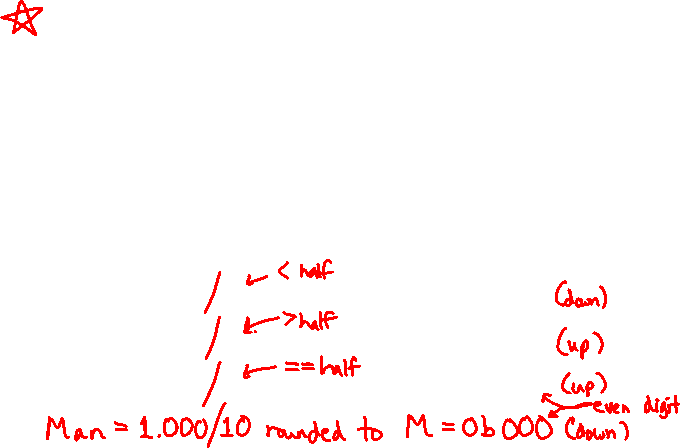 < half
(down)
> half
(up)
== half
(up)
even digit
Man = 1.000/10 rounded to M = 0b000 (down)